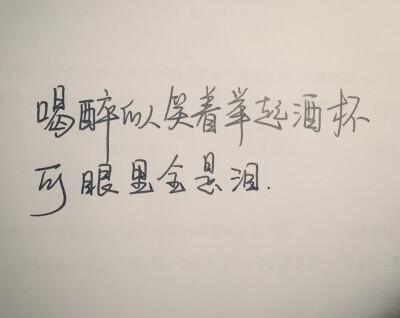 喝醉的人笑着举起酒杯
可眼里全是泪.